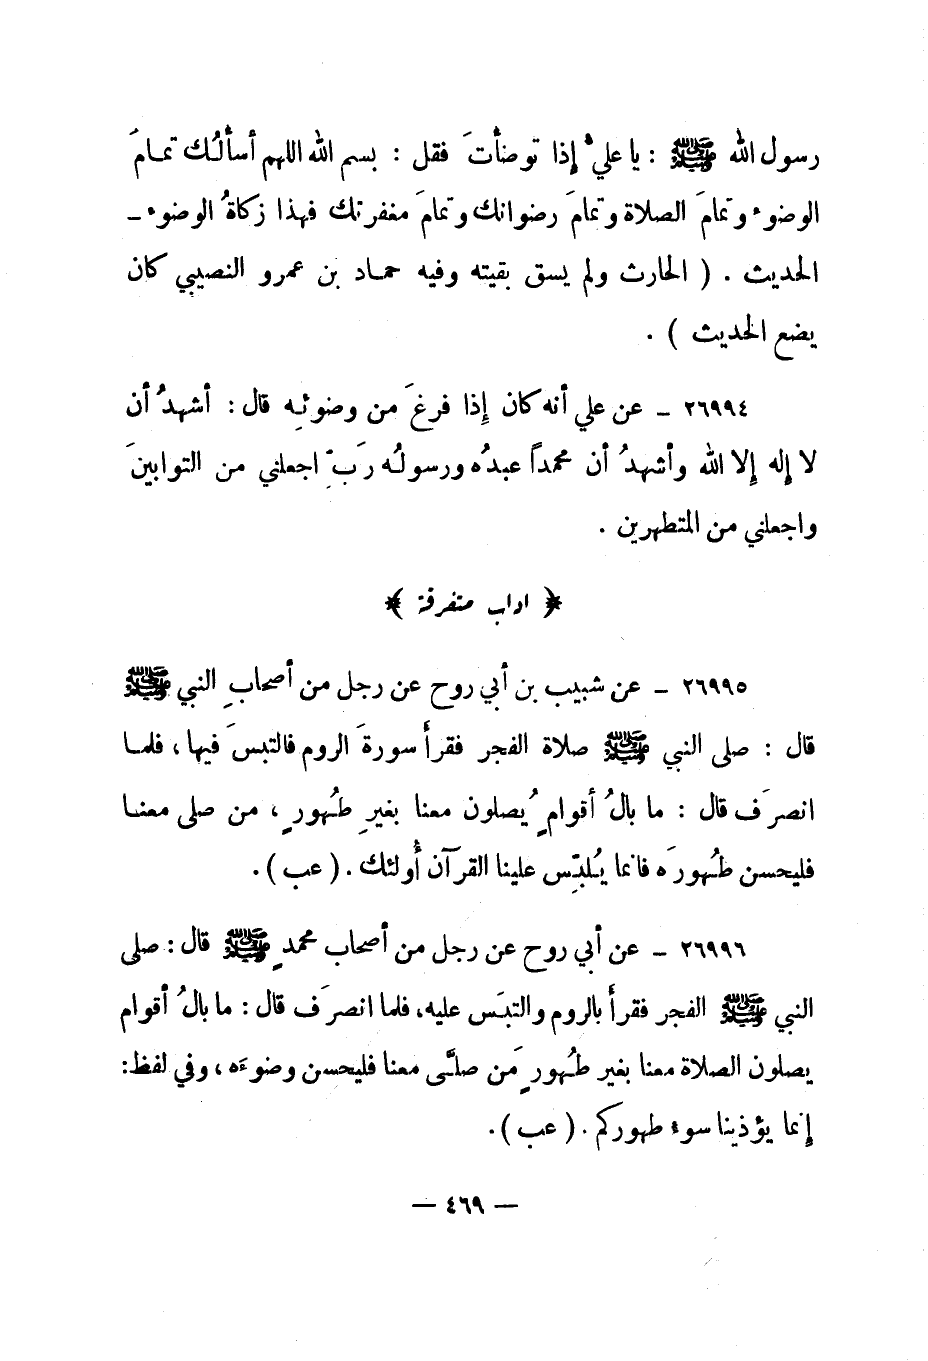 رسول الله ﷺ : يا عليُّ إذا توضأتَ فقل : بسم الله اللهم أسألُك تمامَ
الوضوء وتمامَ الصلاة وتمامَ رضوانك وتمامَ مغفرتك فهذا زكاةُ الوضوء –
الحديث . ( الحارث ولم يسق بقيته وفيه حماد بن عمرو النصيبي كان
يضع الحديث ) .
٢٦٩٩٤ – عن علي أنه كان إذا فرغَ من وضوئِه قال : أشهدُ أن
لا إله إلا الله وأشهدُ أن محمداً عبدُه ورسولُه رَبِّ اجعلني من التوابينَ
واجعلني من المتطهرين .
﴿ اداب متفرقة ﴾
٢٦٩٩٥ – عن شبيب بن أبي روح عن رجل من أصحابِ النبي ﷺ
قال : صلى النبي ﷺ صلاة الفجر فقرأَ سورةَ الروم فالتبسَ فيها ، فلما
انصرَف قال : ما بالُ أقوامٍ يُصلون معنا بغيرِ طُهورٍ ، من صلى معنا
فليحسن طُهورَه فانما يُلبِّس علينا القرآن أُولئك . ( عب ) .
٢٦٩٩٦ – عن أبي روح عن رجل من أصحاب محمدٍ ﷺ قال : صلى
النبي ﷺ الفجر فقرأَ بالروم والتبَس عليه، فلما انصرَف قال : ما بالُ أقوام
يصلون الصلاة معنا بغير طُهورٍ مَن صلَّى معنا فليحسن وضوءَه ، وفي لفظ:
إنما يؤذينا سوء طهوركم . ( عب ) .
— ٤٦٩ —